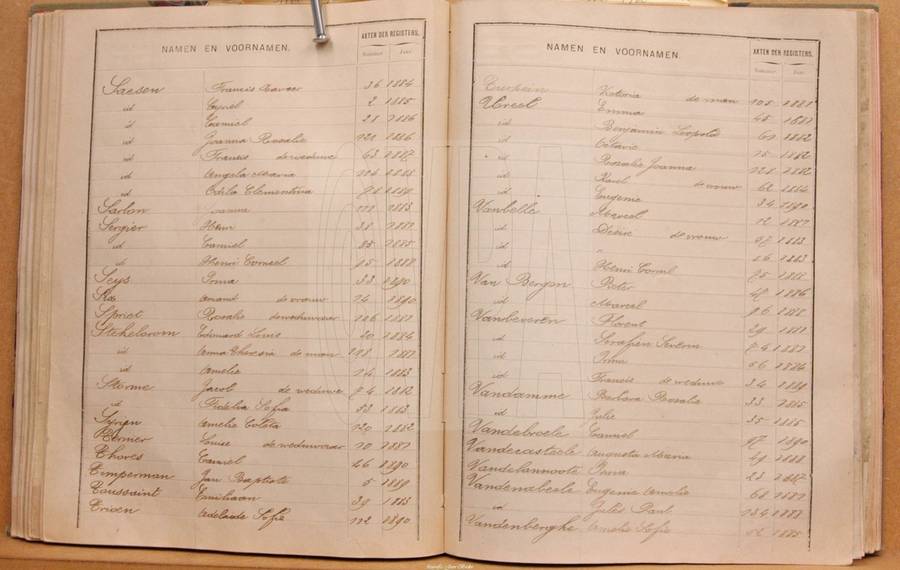 NAMEN EN VOORNAMEN.
AKTEN DER REGISTERS.
Nummer Jaar
Saesen Francis Xavier 36 1884
id Cyriel 2 1885
id Camiel 28 1886
id Joanna Rosalie 121 1886
id Francis de weduwe 63 1887
id Angela Maria 1888
id Odila Clementina
Sarlon 1883
Sergier Henri 38
id Camiel 85 1885
id Henri Corneel 95 1888
Seys Irma 33 1890
Six Amand de vrouw 74 1890
Spriet Rosalie de weduwnaar 126 1887
Stekelorom Edouard Louis 20 1884
id Anna Theresia de man
id Amelie 74 1883
Storme Jacob de weduwe 74 1882
id Fidelia Sofia 93 1883
Syrien Amelie Coleta 120 1882
Louise de weduwnaar 10 1887
Thores Camiel 46 1890
Timperman Jan Baptiste 5 1889
Toussaint Emiliaan 39 1883
Trioen Adelaide Sofie 112 1890
NAMEN EN VOORNAMEN.
AKTEN DER REGISTERS.
Nummer Jaar
Turpein Victoria de man 105 1881
Ulreel Emma 45 1881
id Benjamin Leopold 69 1882
id Octavie 75 1882
id Rosalie Joanna 128 1882
id Karel de vrouw 62 1884
id Eugenie 34 1890
Vanbelle Marcel 12 1887
id Desire de vrouw 57 1883
id " 86 1883
id Henri Cornil 75
Van Bergen Peter 48 1886
id Marcel 96
Vanbeveren Florent 29 1881
id Serafien Severin 74 1881
id Irma 86 1884
id Francis de weduwe 34 1888
Vandamme Barbara Rosalie 33 1885
id Julie 35 1885
Vandebroele Camiel 97 1890
Vandecasteele Augusta Maria 49 1888
Vandelannoote Irma 23 1887
Vandenabeele Eugenie Amelie 68 1881
id Jules Paul 134 1881
Vandenberghe Amelie Sofie 52 1885